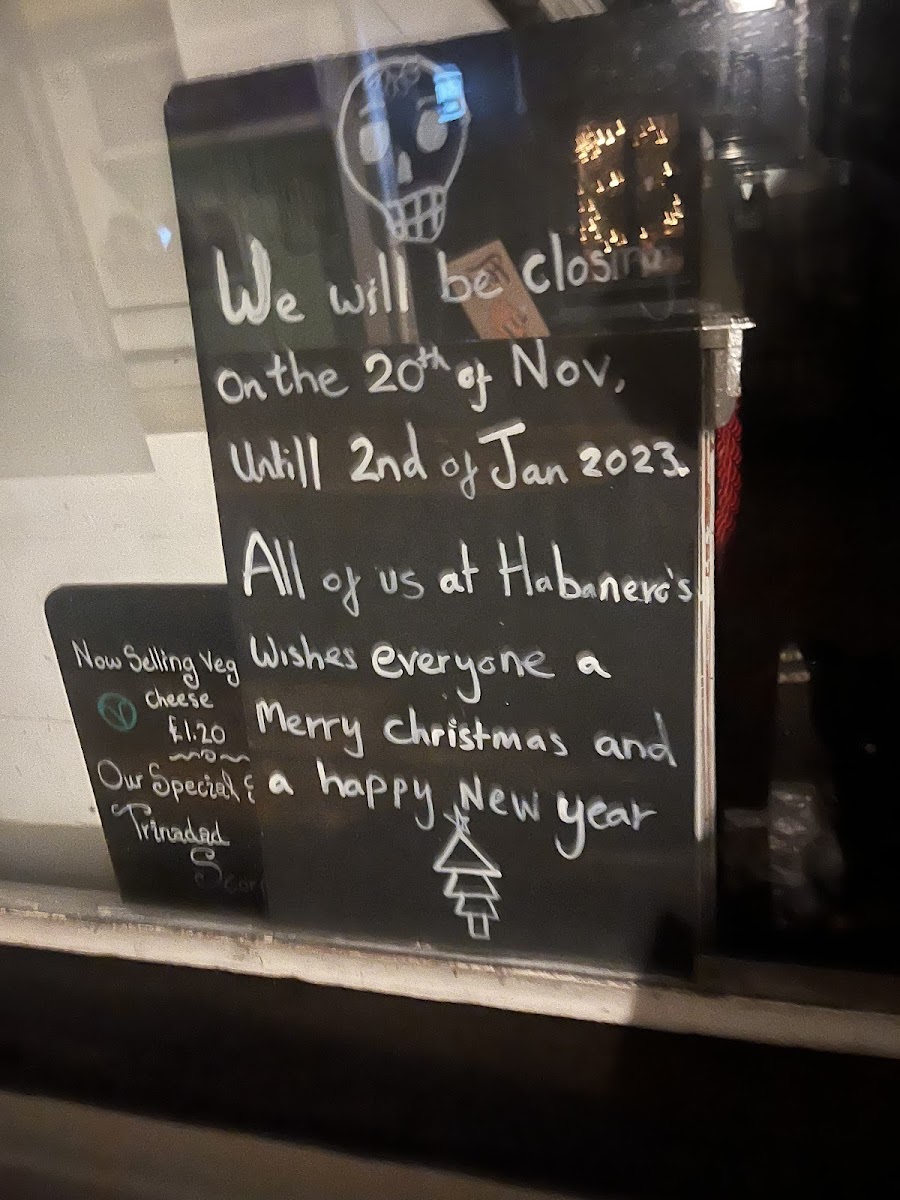 We will be closing
on the 20th of Nov,
Untill 2nd of Jan 2023.
All of us at Habanero's
Wishes everyone a
Merry christmas and
a happy New year
Now Selling Veg
V cheese
£1.20
Our Special
Trinadad